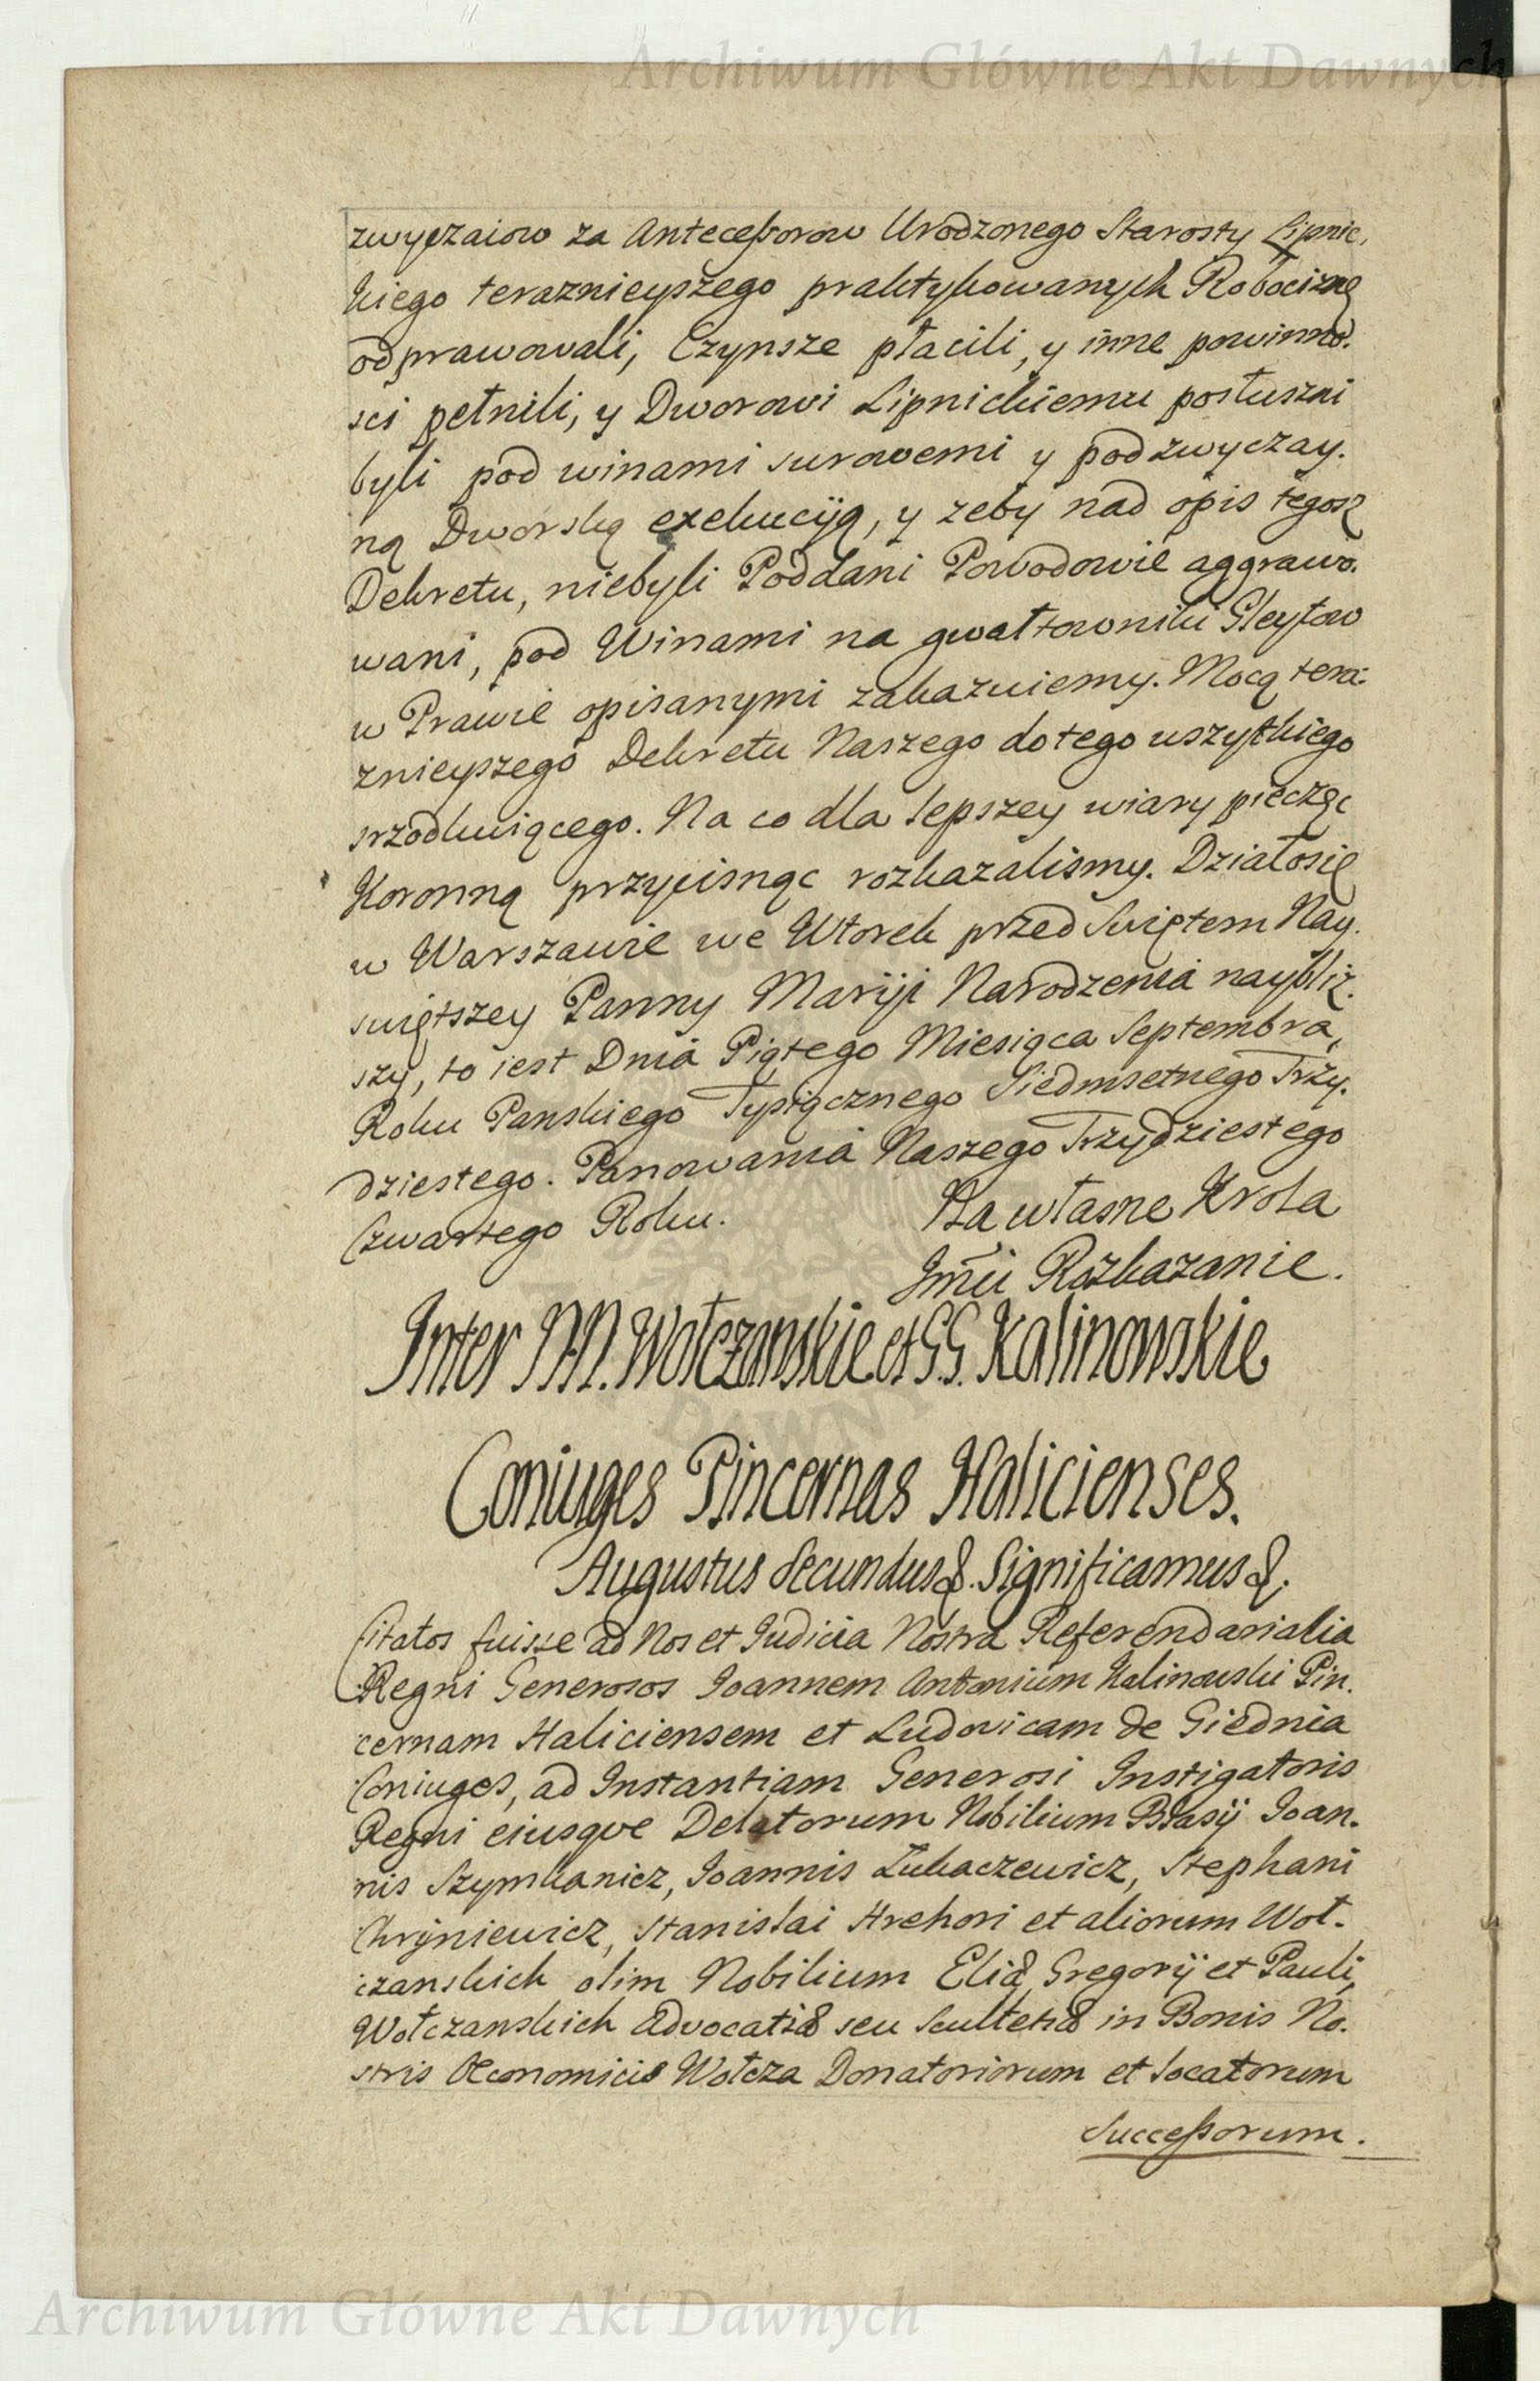 Archiwum Główne Akt Dawnych
zwyczaiow za Antecessorow Urodzonego Starosty Lipnic.
kiego teraznieyszego praktykowanych Robociznę
odprawowali, Czynsze płacili, y inne powinno.
sci pełnili, y Dworowi Lipnickiemu posłuszni
byli pod winami surowemi y pod zwyczay.
ną Dworską exekucyją, y zeby nad opis tegosz
Dekretu, niebyli Poddani Powodowie aggrawo.
wani, pod Winami na gwałtowniki Gleytow
w Prawie opisanymi zakazuiemy. Mocą tera:
znieyszego Dekretu Naszego do tego wszytkiego
srzodkuiącego. Na co dla lepszey wiary pieczęc
Koronną przycisnąc rozkazalismy. Działosię
w Warszawie we Wtorek przed Swiętem Nay.
swiętszey Panny Maryji Narodzenia naybliz.
szy, to iest Dnia Piątego Miesiąca Septembra,
Roku Panskiego Tysiącznego Siedmsetnego Trzy.
dziestego. Panowania Naszego Trzydziestego
Czwartego Roku. Na własne Krola
Jmci Rozkazanie.
Inter NN. Wołczanskie et G.G. Kalinowskie
Coniuges Pincernas Halicienses.
Augustus Secundus &. Significamus &.
Citatos fuisse ad Nos et Iudicia Nostra Referendarialia
Regni Generosos Ioannem Antonium Kalinowski Pin.
cernam Haliciensem et Ludovicam de Giednia
Coniuges, ad Instantiam Generosi Instigatoris
Regni eiusqve Delatorum Nobilium Błasij Ioan.
nis Szymkanicz, Joannis Łukaczewicz, Stephani
Chryniewicz, Stanislai Hrehori et aliorum Woł.
czanskich olim Nobilium Eliæ, Gregorij et Pauli,
Wołczanskich Advocatiæ seu Scultetiæ in Bonis No.
stris Œconomicis Wołcza Donatoriorum et locatorum
Successorum.
Archiwum Główne Akt Dawnych